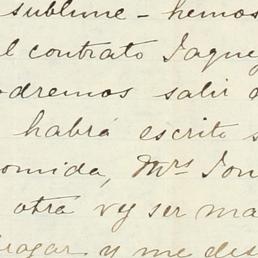 sublime - hemos
el contrato Jaque
odremos salir
habrá escrito s
omida, Mrs Jon
otra vez ser ma
rogar y me des